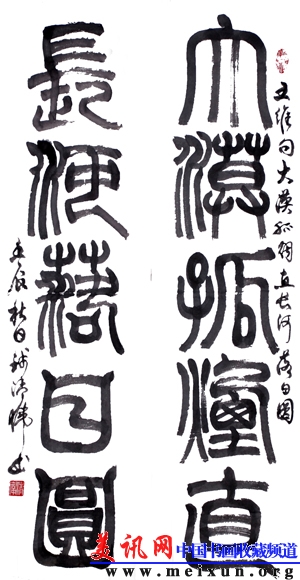 王维句大漠孤烟直长河落日圆
大漠孤煙直
長河落日圓
壬辰秋日
书
美讯网 中国书画收藏频道
www.meixun.org